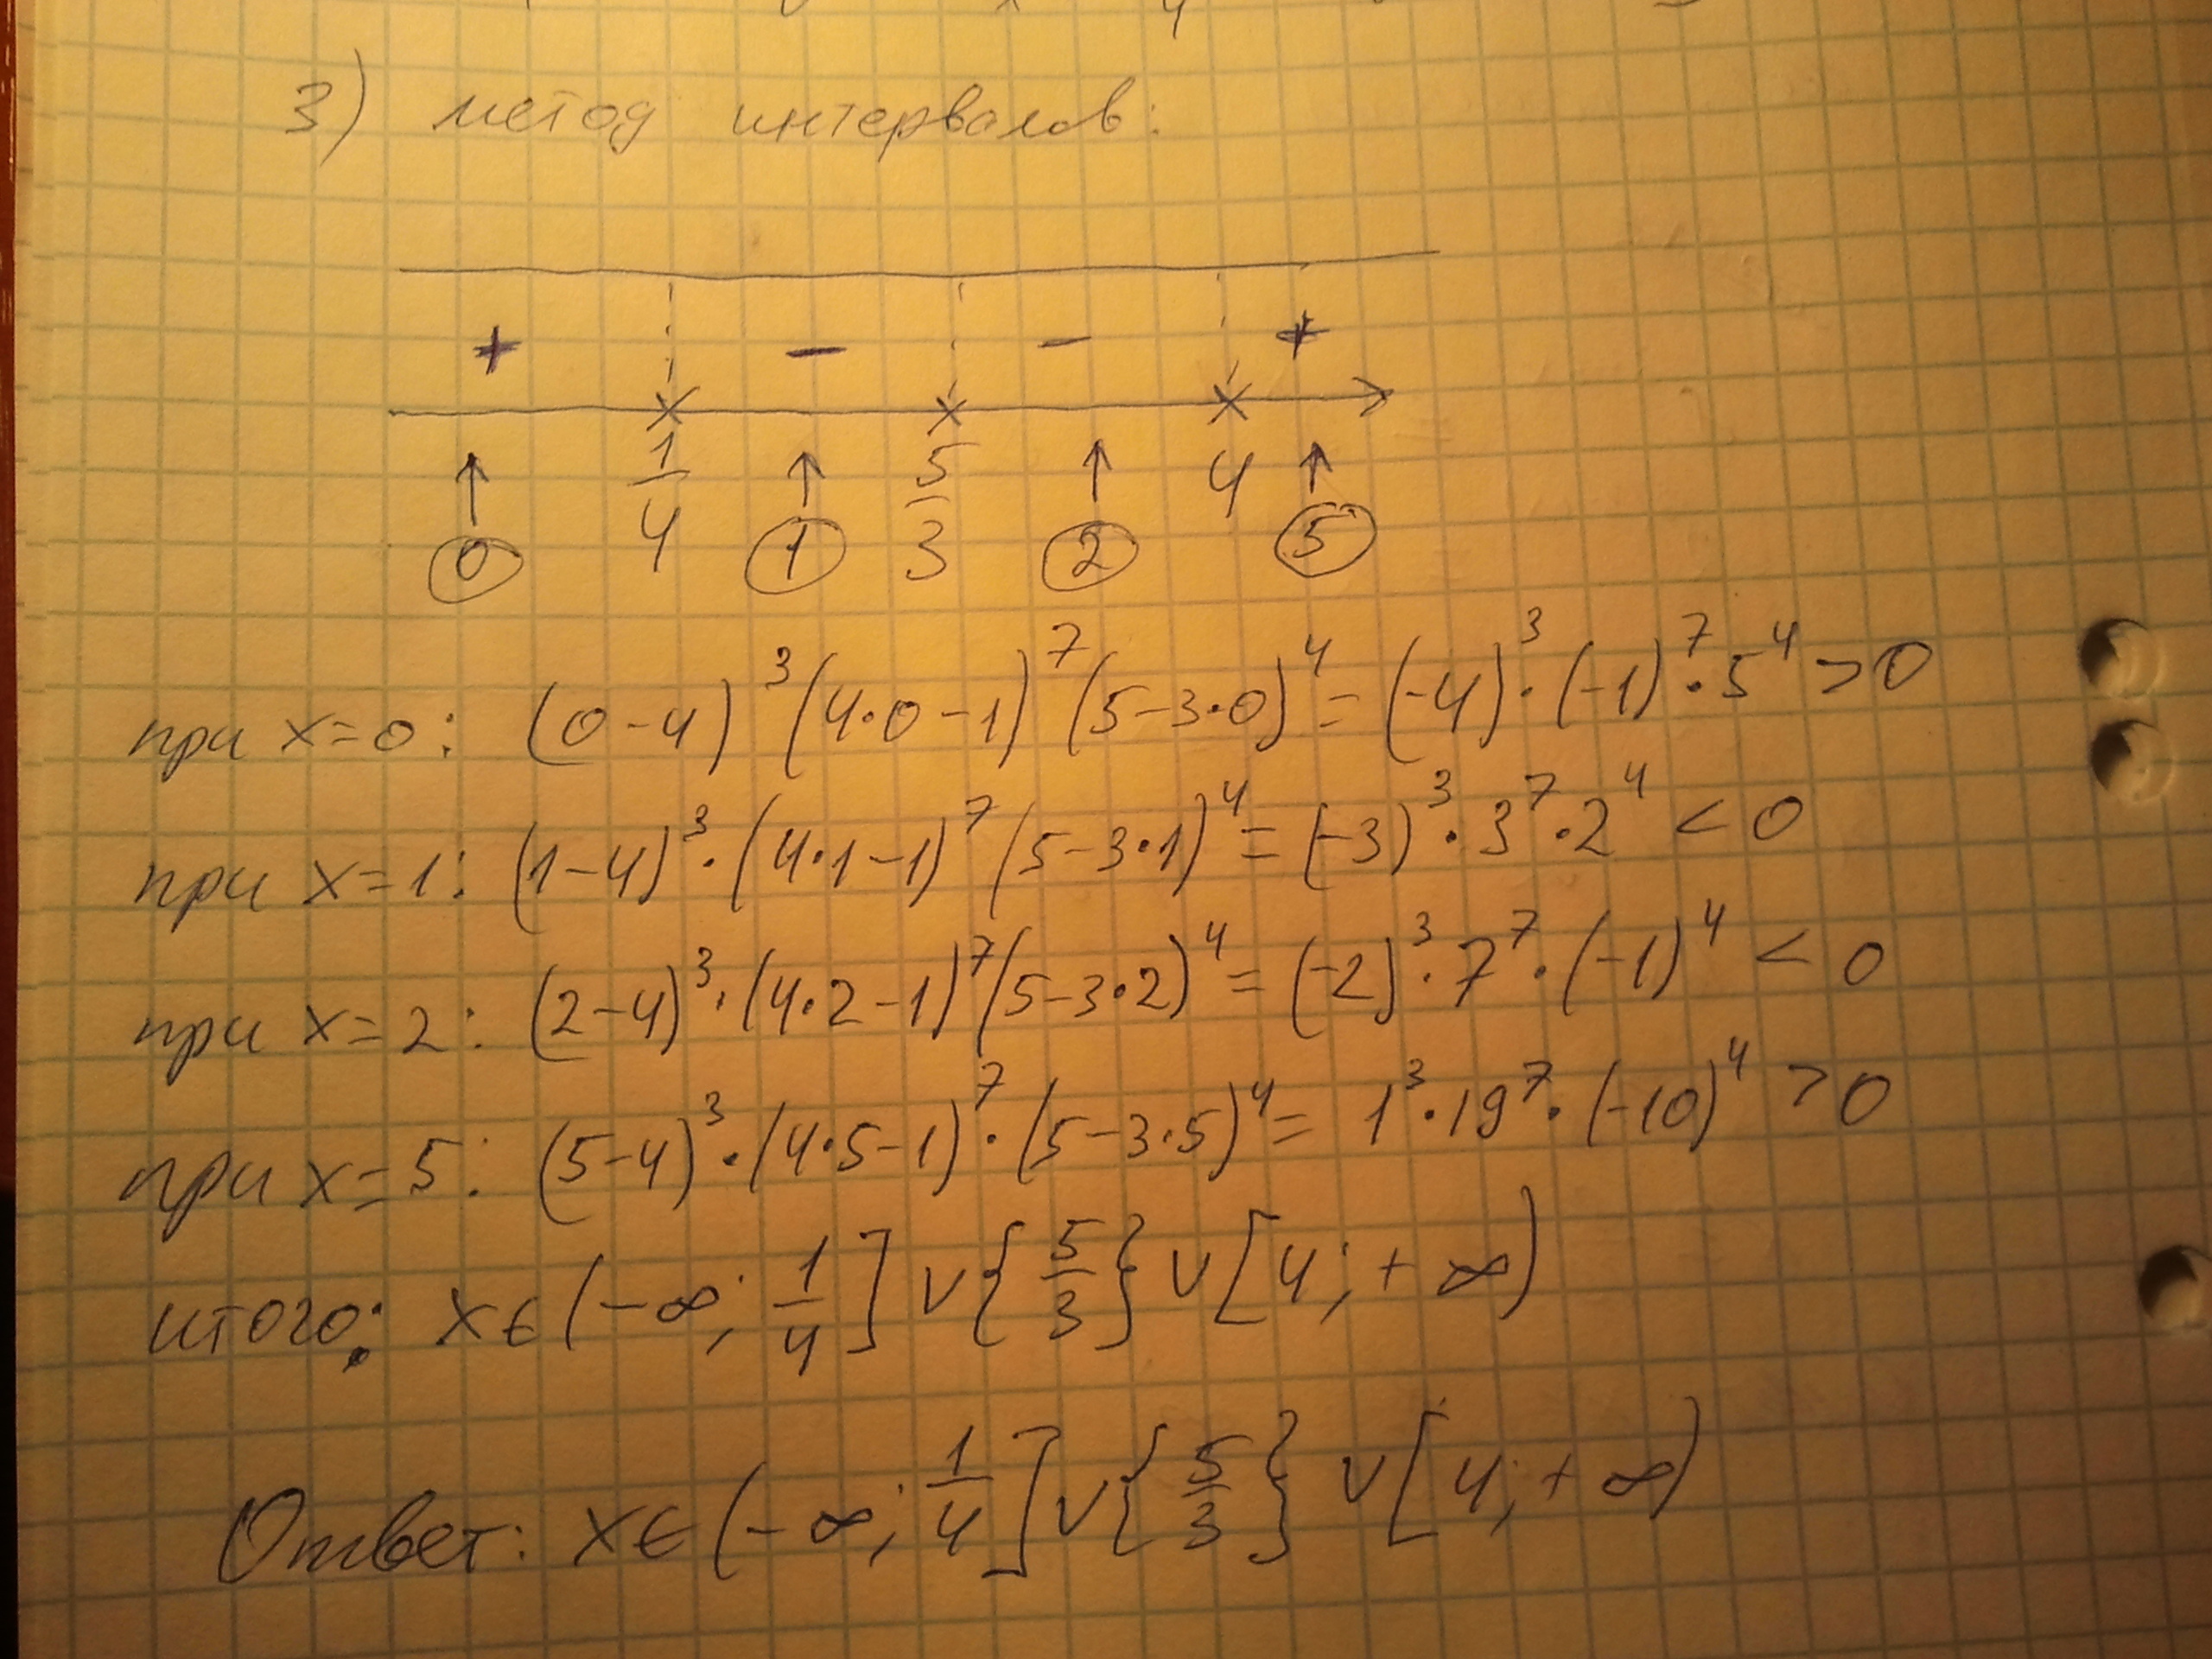 3) метод интервалов:
+ − − +
1/4 5/3 4
0 1 2 5
при x=0: (0-4)³(4·0-1)⁷(5-3·0)⁴=(-4)³·(-1)⁷·5⁴>0
при x=1: (1-4)³·(4·1-1)⁷(5-3·1)⁴=(-3)³·3⁷·2⁴<0
при x=2: (2-4)³·(4·2-1)⁷(5-3·2)⁴=(-2)³·7⁷·(-1)⁴<0
при x=5: (5-4)³·(4·5-1)⁷·(5-3·5)⁴=1³·19⁷·(-10)⁴>0
итого: x∈(-∞; 1/4]∨{5/3}∨[4;+∞)
Ответ: x∈(-∞; 1/4]∨{5/3}∨[4;+∞)